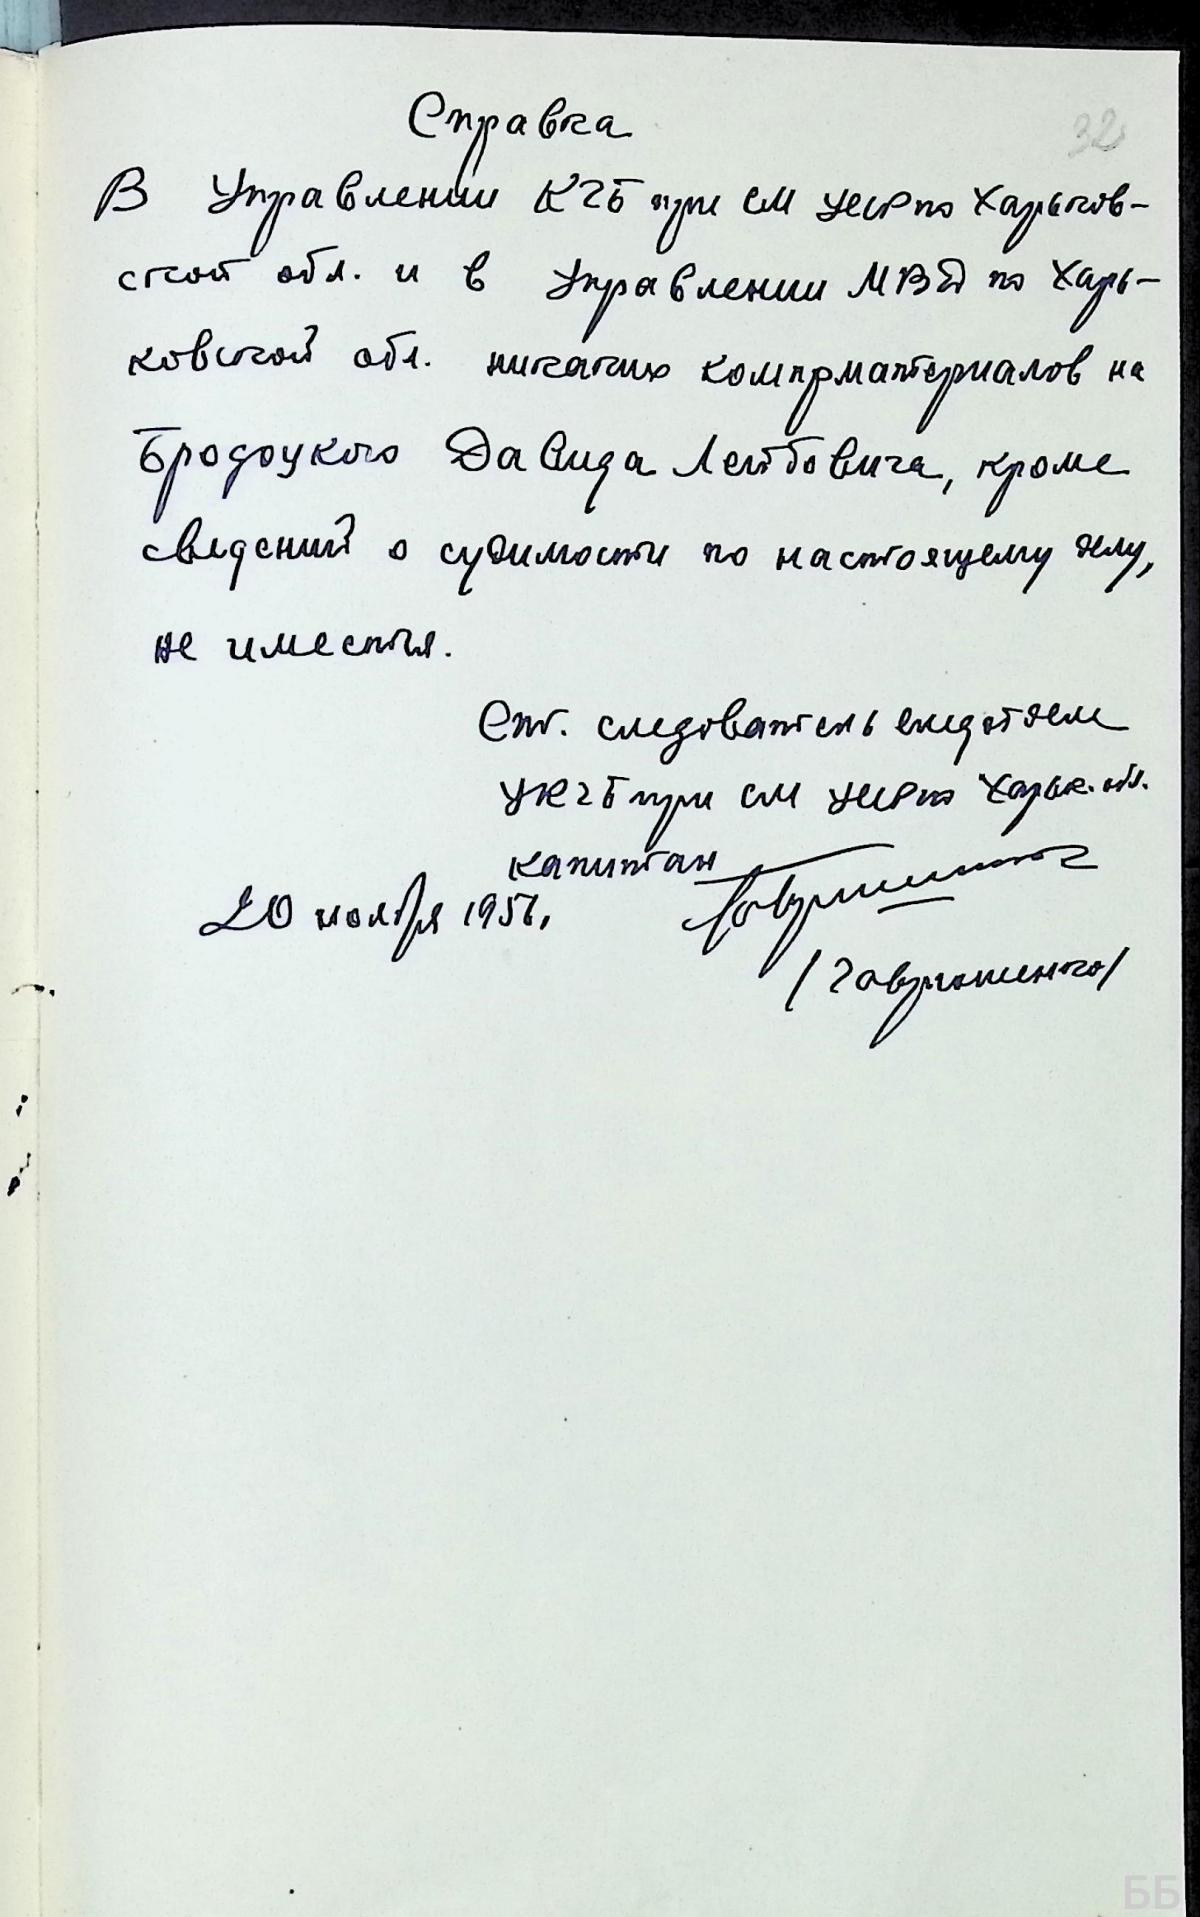 32
Справка
В Управлении КГБ при СМ УССР по Харьков-
ской обл. и в Управлении МВД по Харь-
ковской обл. никаких компрматериалов на
Бродоцкого Давида Лейбовича, кроме
сведений о судимости по настоящему делу,
не имеется.
Ст. следователь следотдела
УКГБ при СМ УССР по Харьк. обл.
капитан
20 ноября 1956г.
/Гаврюшенко/
ББ